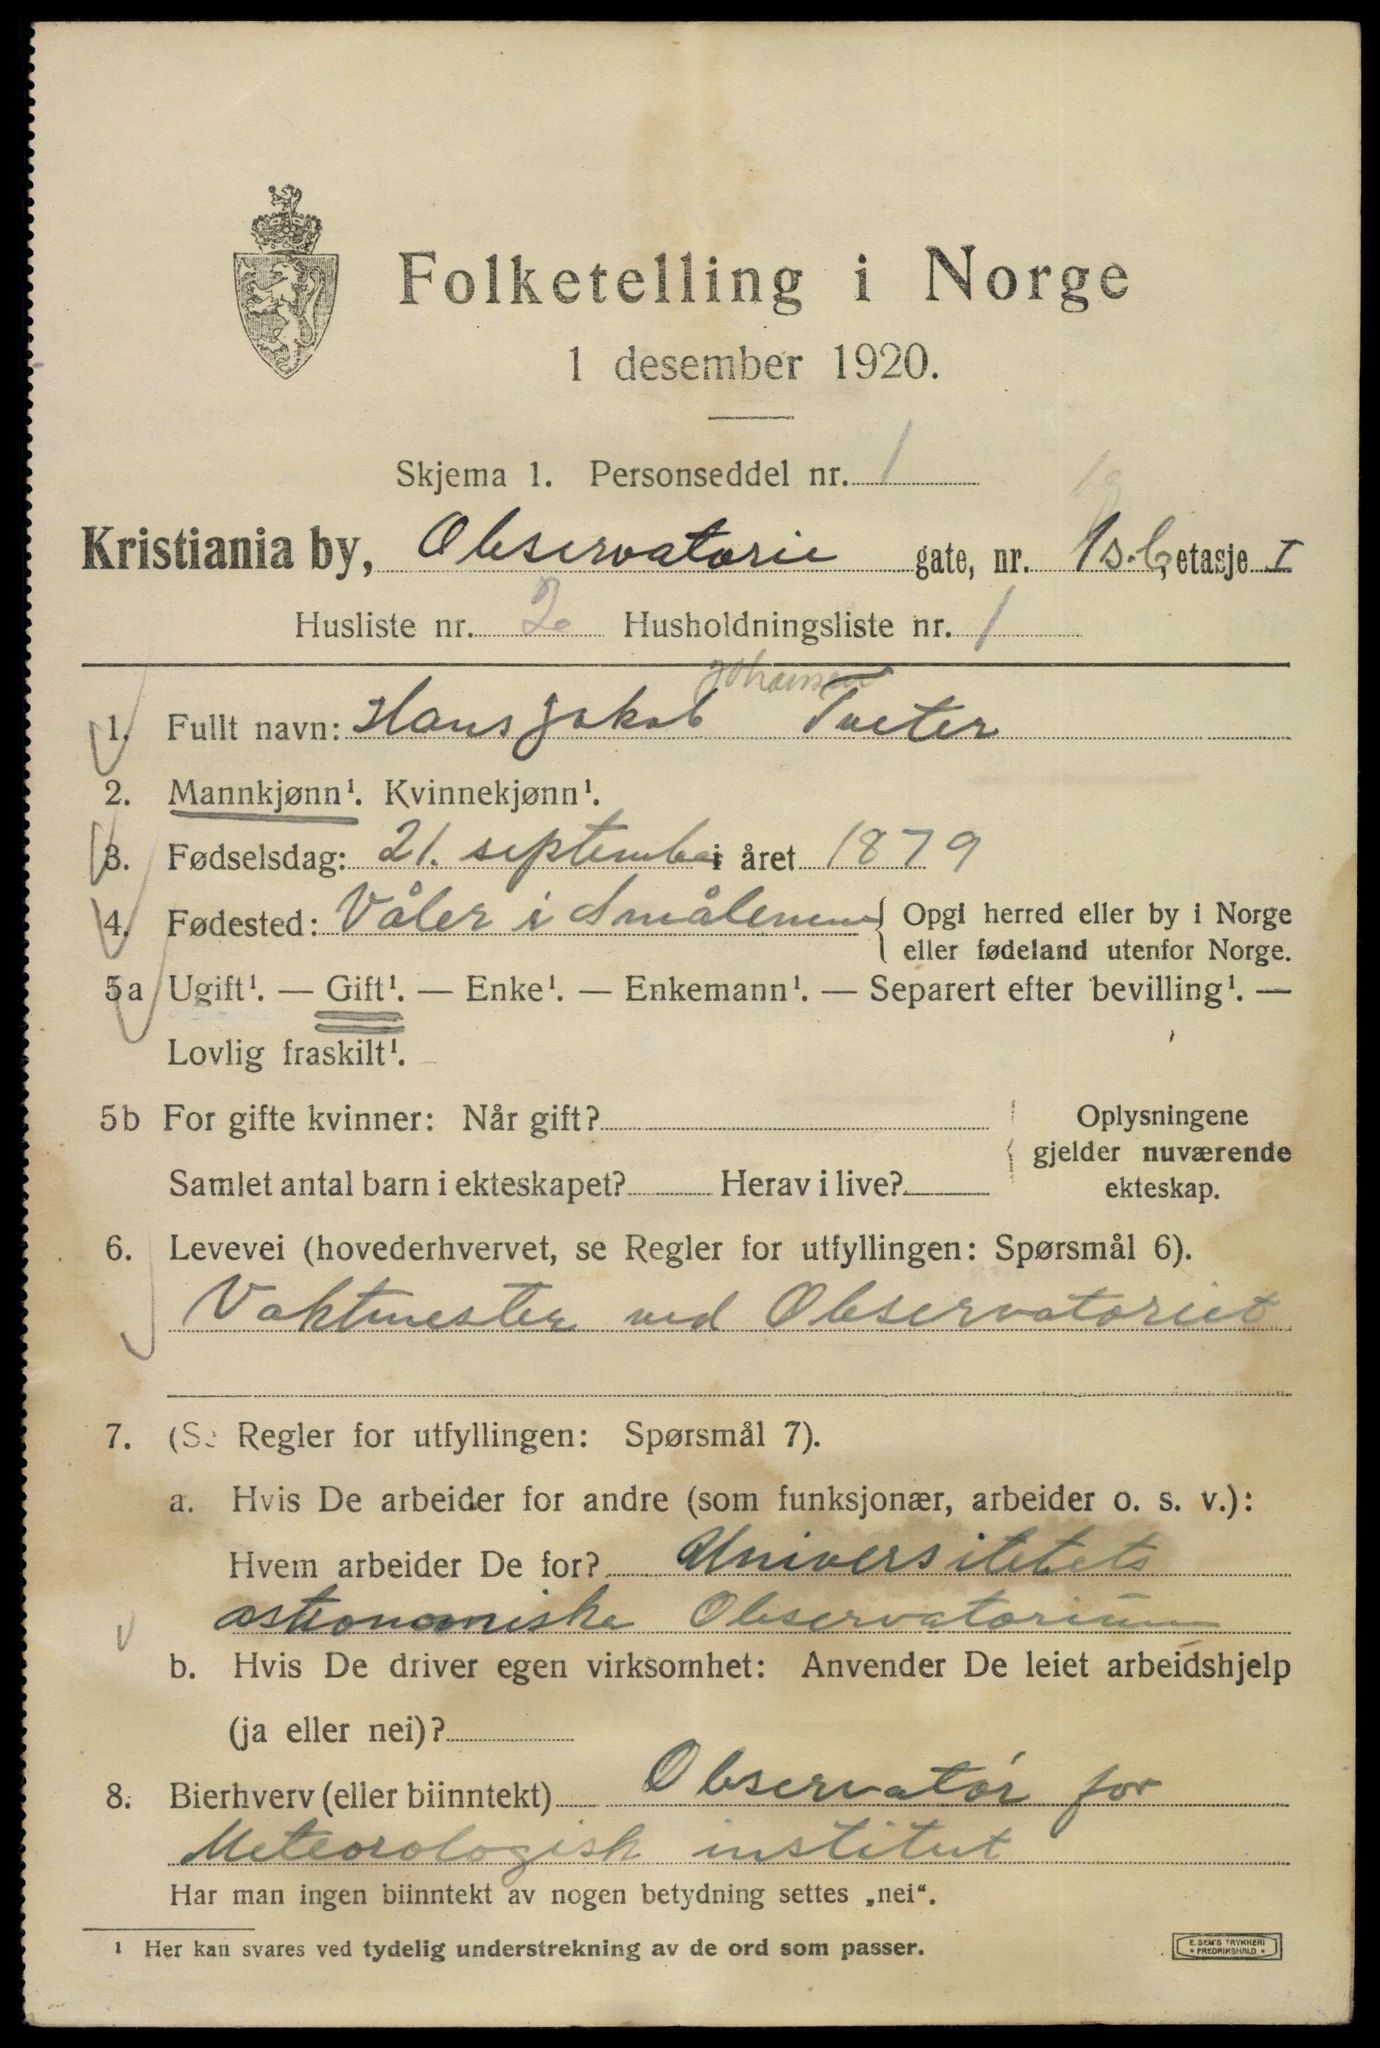 Folketelling i Norge
1 desember 1920.
Skjema 1. Personseddel nr. 1
Kristiania by, Observatorie gate, nr. 1 etasje I
Husliste nr. 2 Husholdningsliste nr. 1
Johansen
1. Fullt navn: Hans Jakob Tveter
2. Mannkjønn¹. Kvinnekjønn¹.
3. Fødselsdag: 21. september i året 1879
4. Fødested: Våler i Smålenene { Opgi herred eller by i Norge
eller fødeland utenfor Norge.
5a Ugift¹. — Gift¹. — Enke¹. — Enkemann¹. — Separert efter bevilling¹. —
Lovlig fraskilt¹.
5b For gifte kvinner: Når gift? Oplysningene
gjelder nuværende
Samlet antal barn i ekteskapet? Herav i live? ekteskap.
6. Levevei (hovederhvervet, se Regler for utfyllingen: Spørsmål 6).
Vaktmester ved Observatoriet
7. (Se Regler for utfyllingen: Spørsmål 7).
a. Hvis De arbeider for andre (som funksjonær, arbeider o. s. v.):
Hvem arbeider De for? Universitetets
astronomiske Observatorium
b. Hvis De driver egen virksomhet: Anvender De leiet arbeidshjelp
(ja eller nei)?
8. Bierhverv (eller biinntekt) Observatør for
Meteorologisk institut
Har man ingen biinntekt av nogen betydning settes „nei“.
¹ Her kan svares ved tydelig understrekning av de ord som passer.
E. SEM'S TRYKKERI
• FREDRIKSHALD •